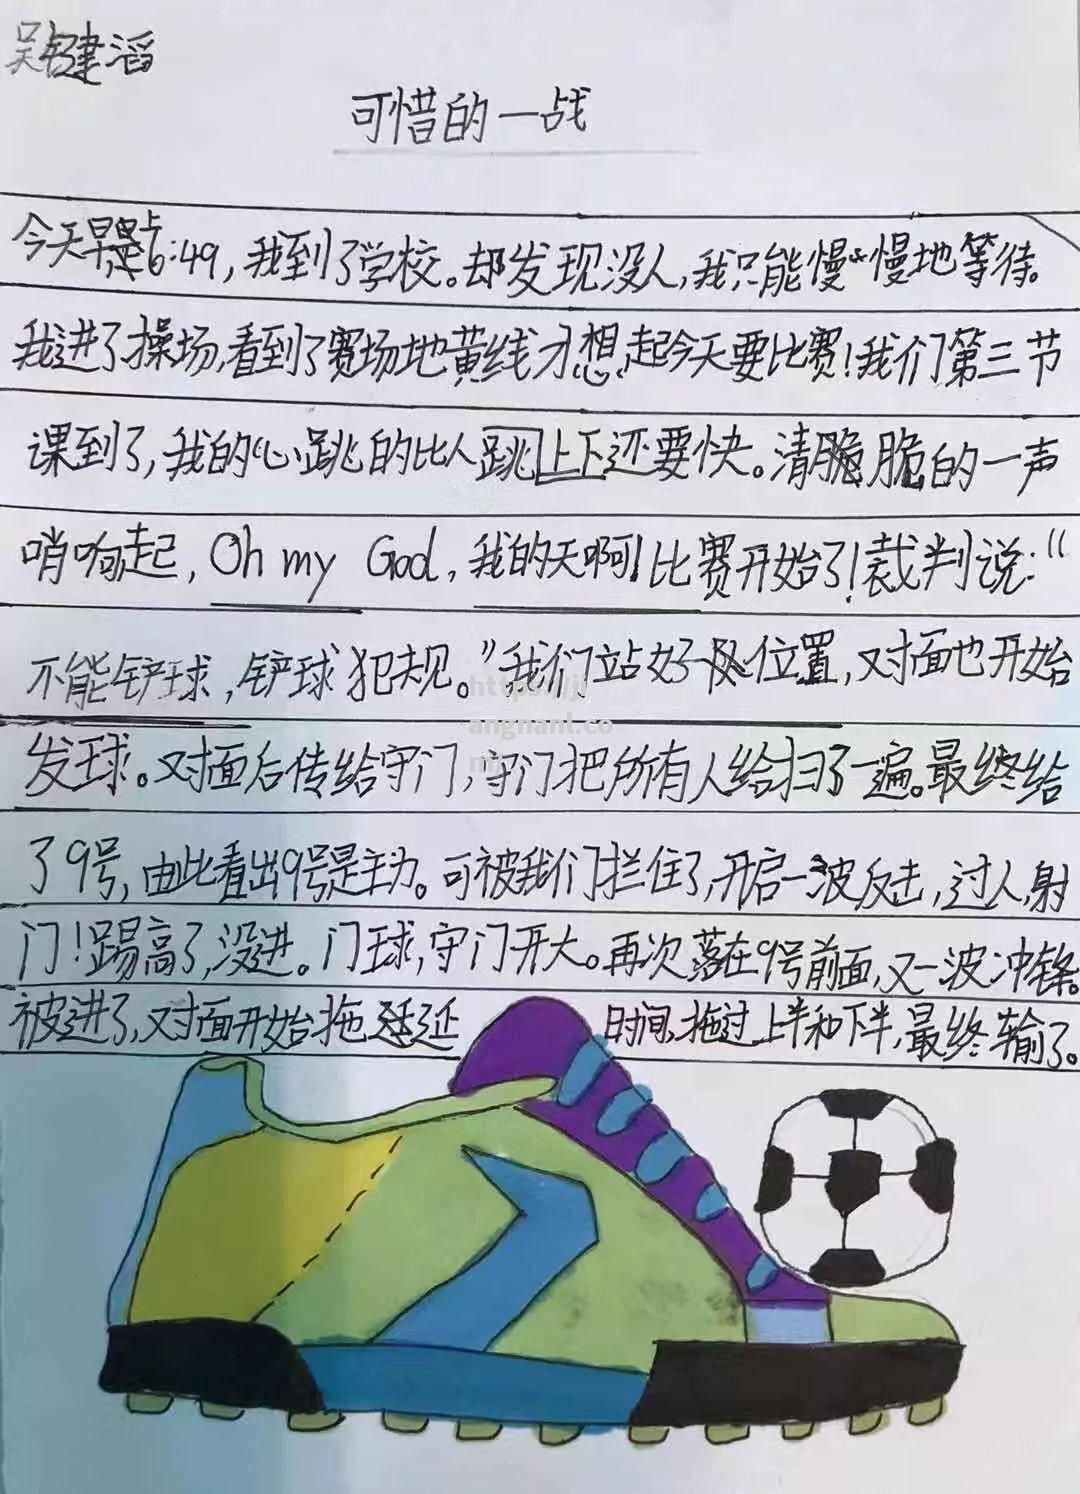 吴键滔
可惜的一战
今天早晨6:49,我到了学校。却发现没人,我只能慢慢地等待。
我进了操场,看到了赛场地黄线才想起今天要比赛!我们第三节
课到了,我的心跳的比人跳上下还要快。清脆脆的一声
哨响起,Oh my God,我的天啊!比赛开始了!裁判说:“
不能铲球,铲球犯规。”我们站好位置,对面也开始
发球。对面后传给守门,守门把所有人给扫了一遍。最终给
了9号,由此看出9号是主力。可被我们拦住了,开启一波反击,过人,射
门!踢高了,没进。门球,守门开大。再次落在9号前面,又一波冲锋。
被进了,对面开始拖延 时间,拖过上半和下半,最终输了。
https://ji
angnant.co
m/